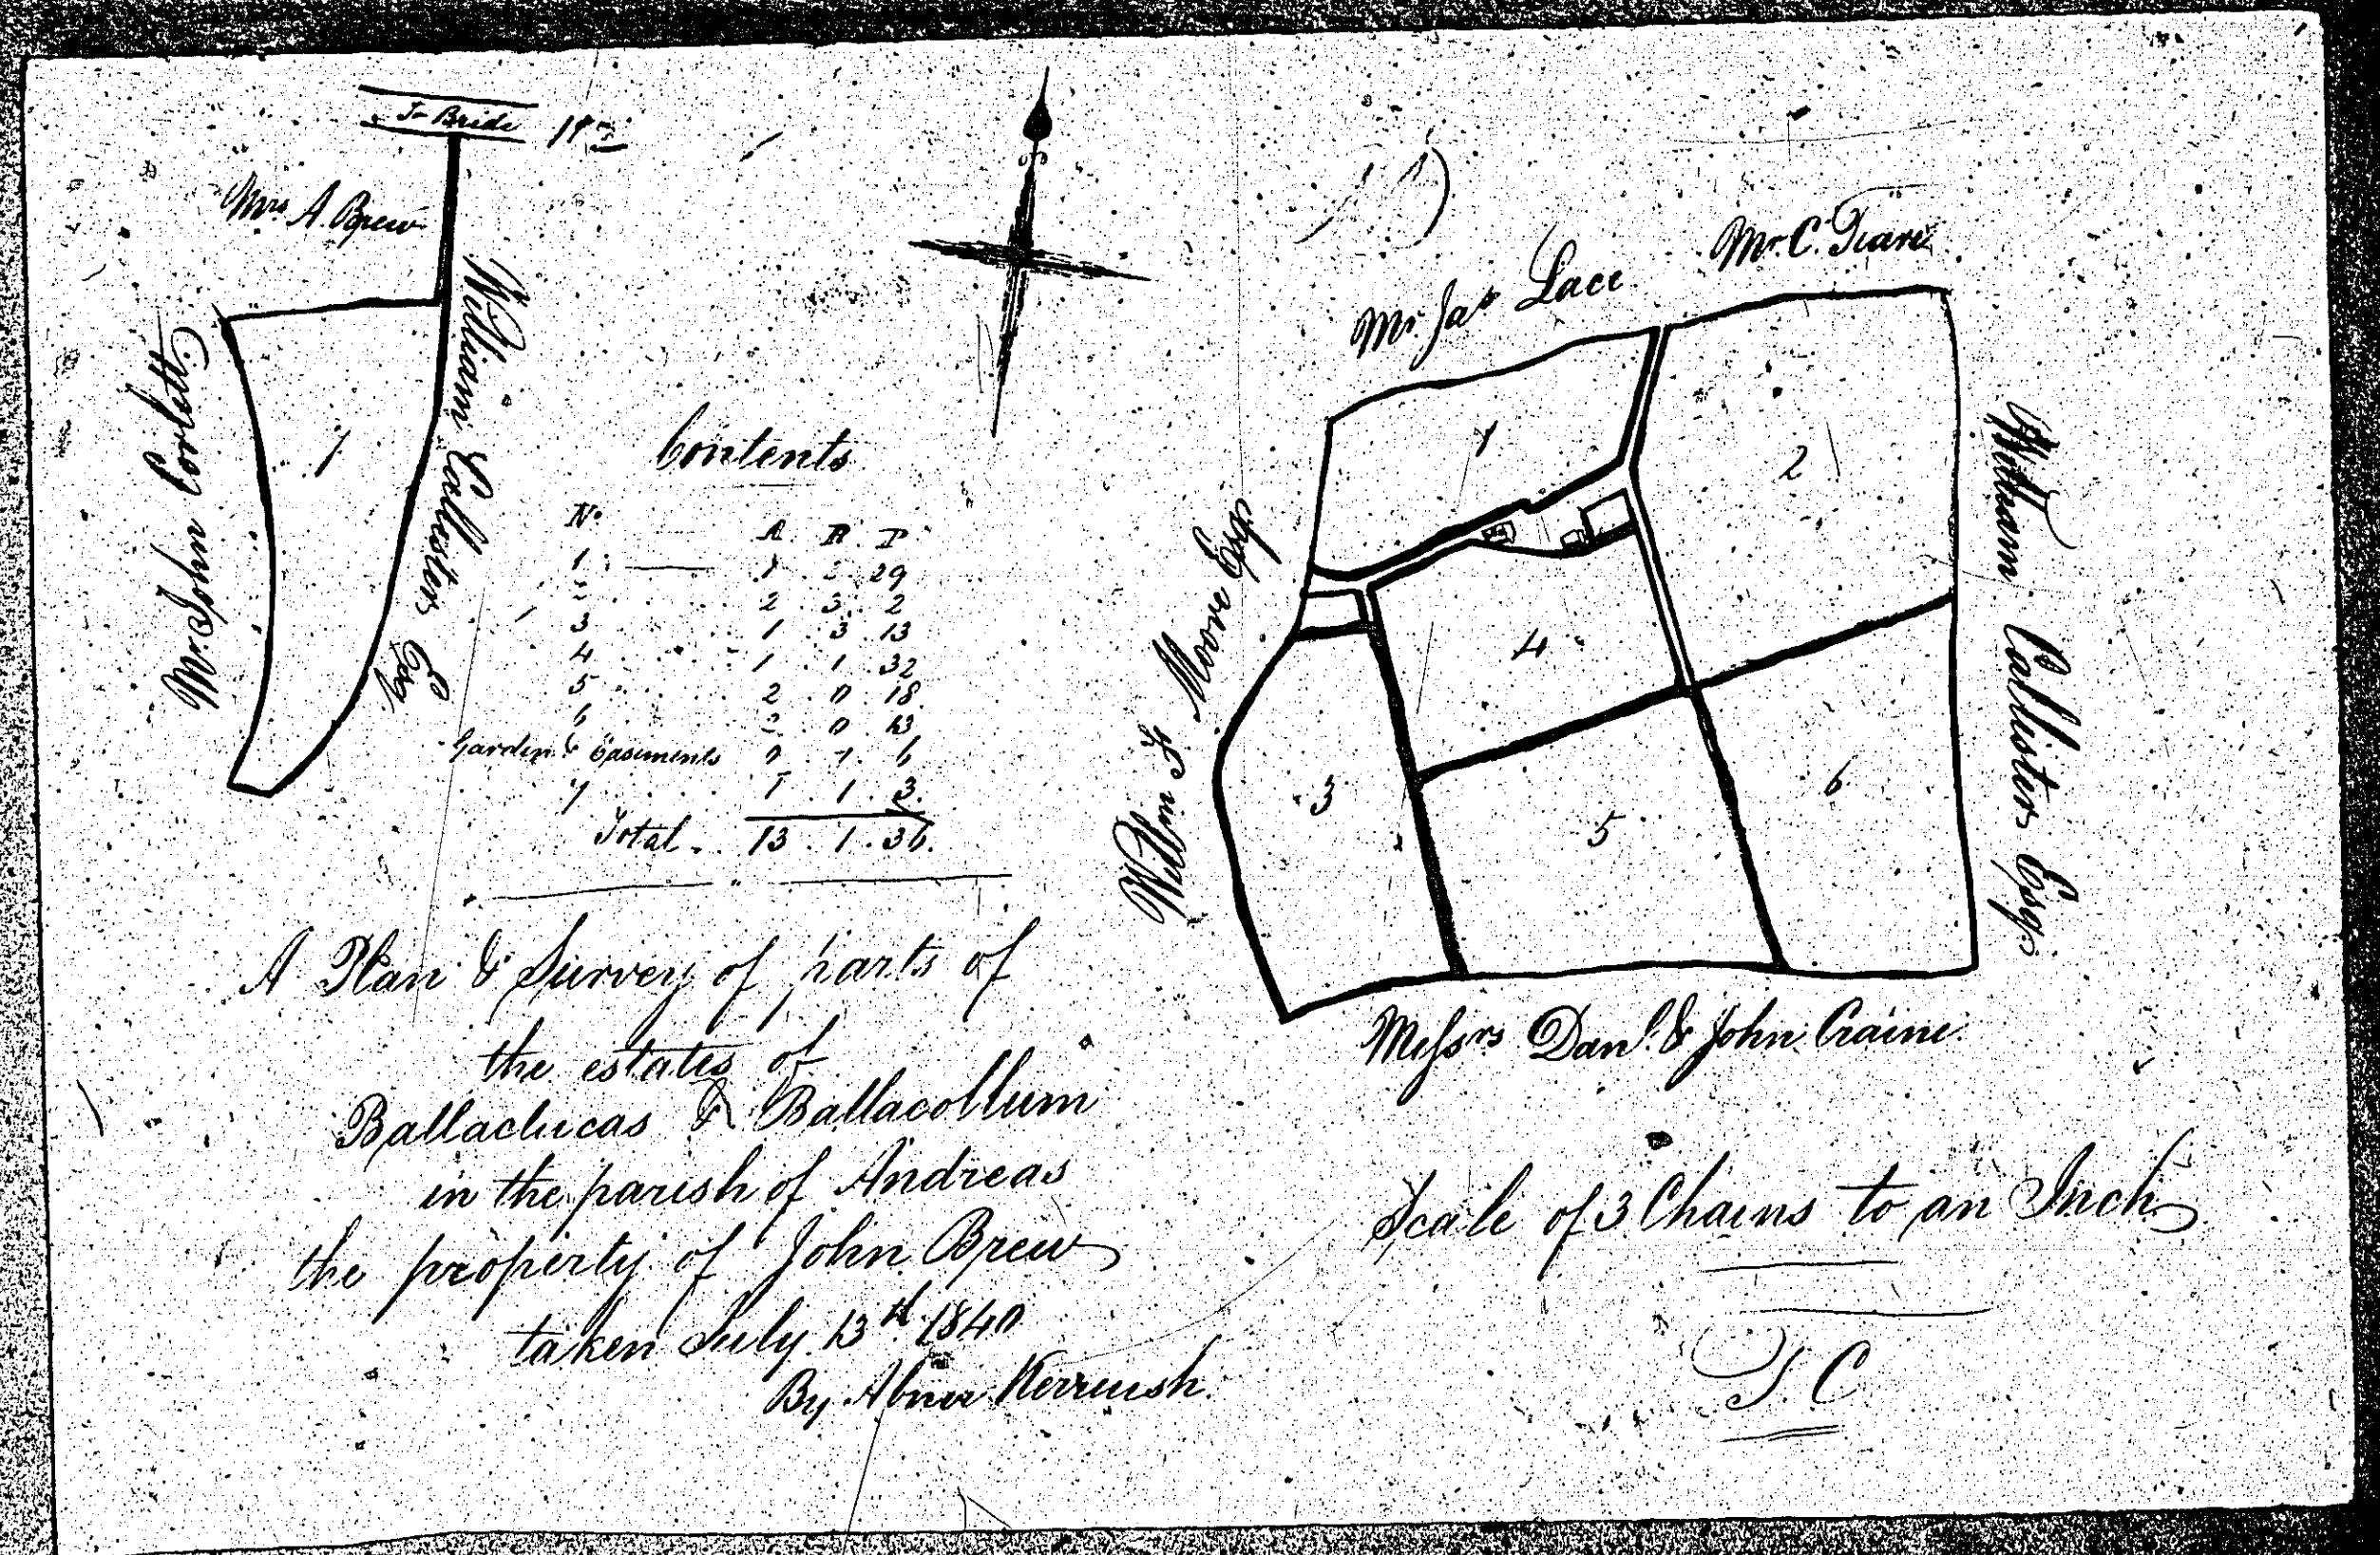 To Bride
Mrs A. Brew
Mr John Corlett
William Callister Esq
1
Contents
No A. R P
1 1 . 2 . 29
2 . 3 . 2
3 1 . 3 . 13
4 1 . 1 . 32
5 2 . 0 . 18
6 2 . 0 . 13
Garden & Easements 0 . 1 . 6
7 1 . 1 . 3.
Total 13 . 1 . 36.
A Plan & Survey of parts of
the estates of
Ballachucas & Ballacollum
in the parish of Andreas
the property of John Brew
taken July 13th 1840
By Abner Kerruish.
Mr Jas Lace
Mr C. Teare
Willm F. Moore Esqr
William Callister Esqr
1
2
3
4
5
6
Messrs Danl. & John Craine
Scale of 3 Chains to an Inch
J. C